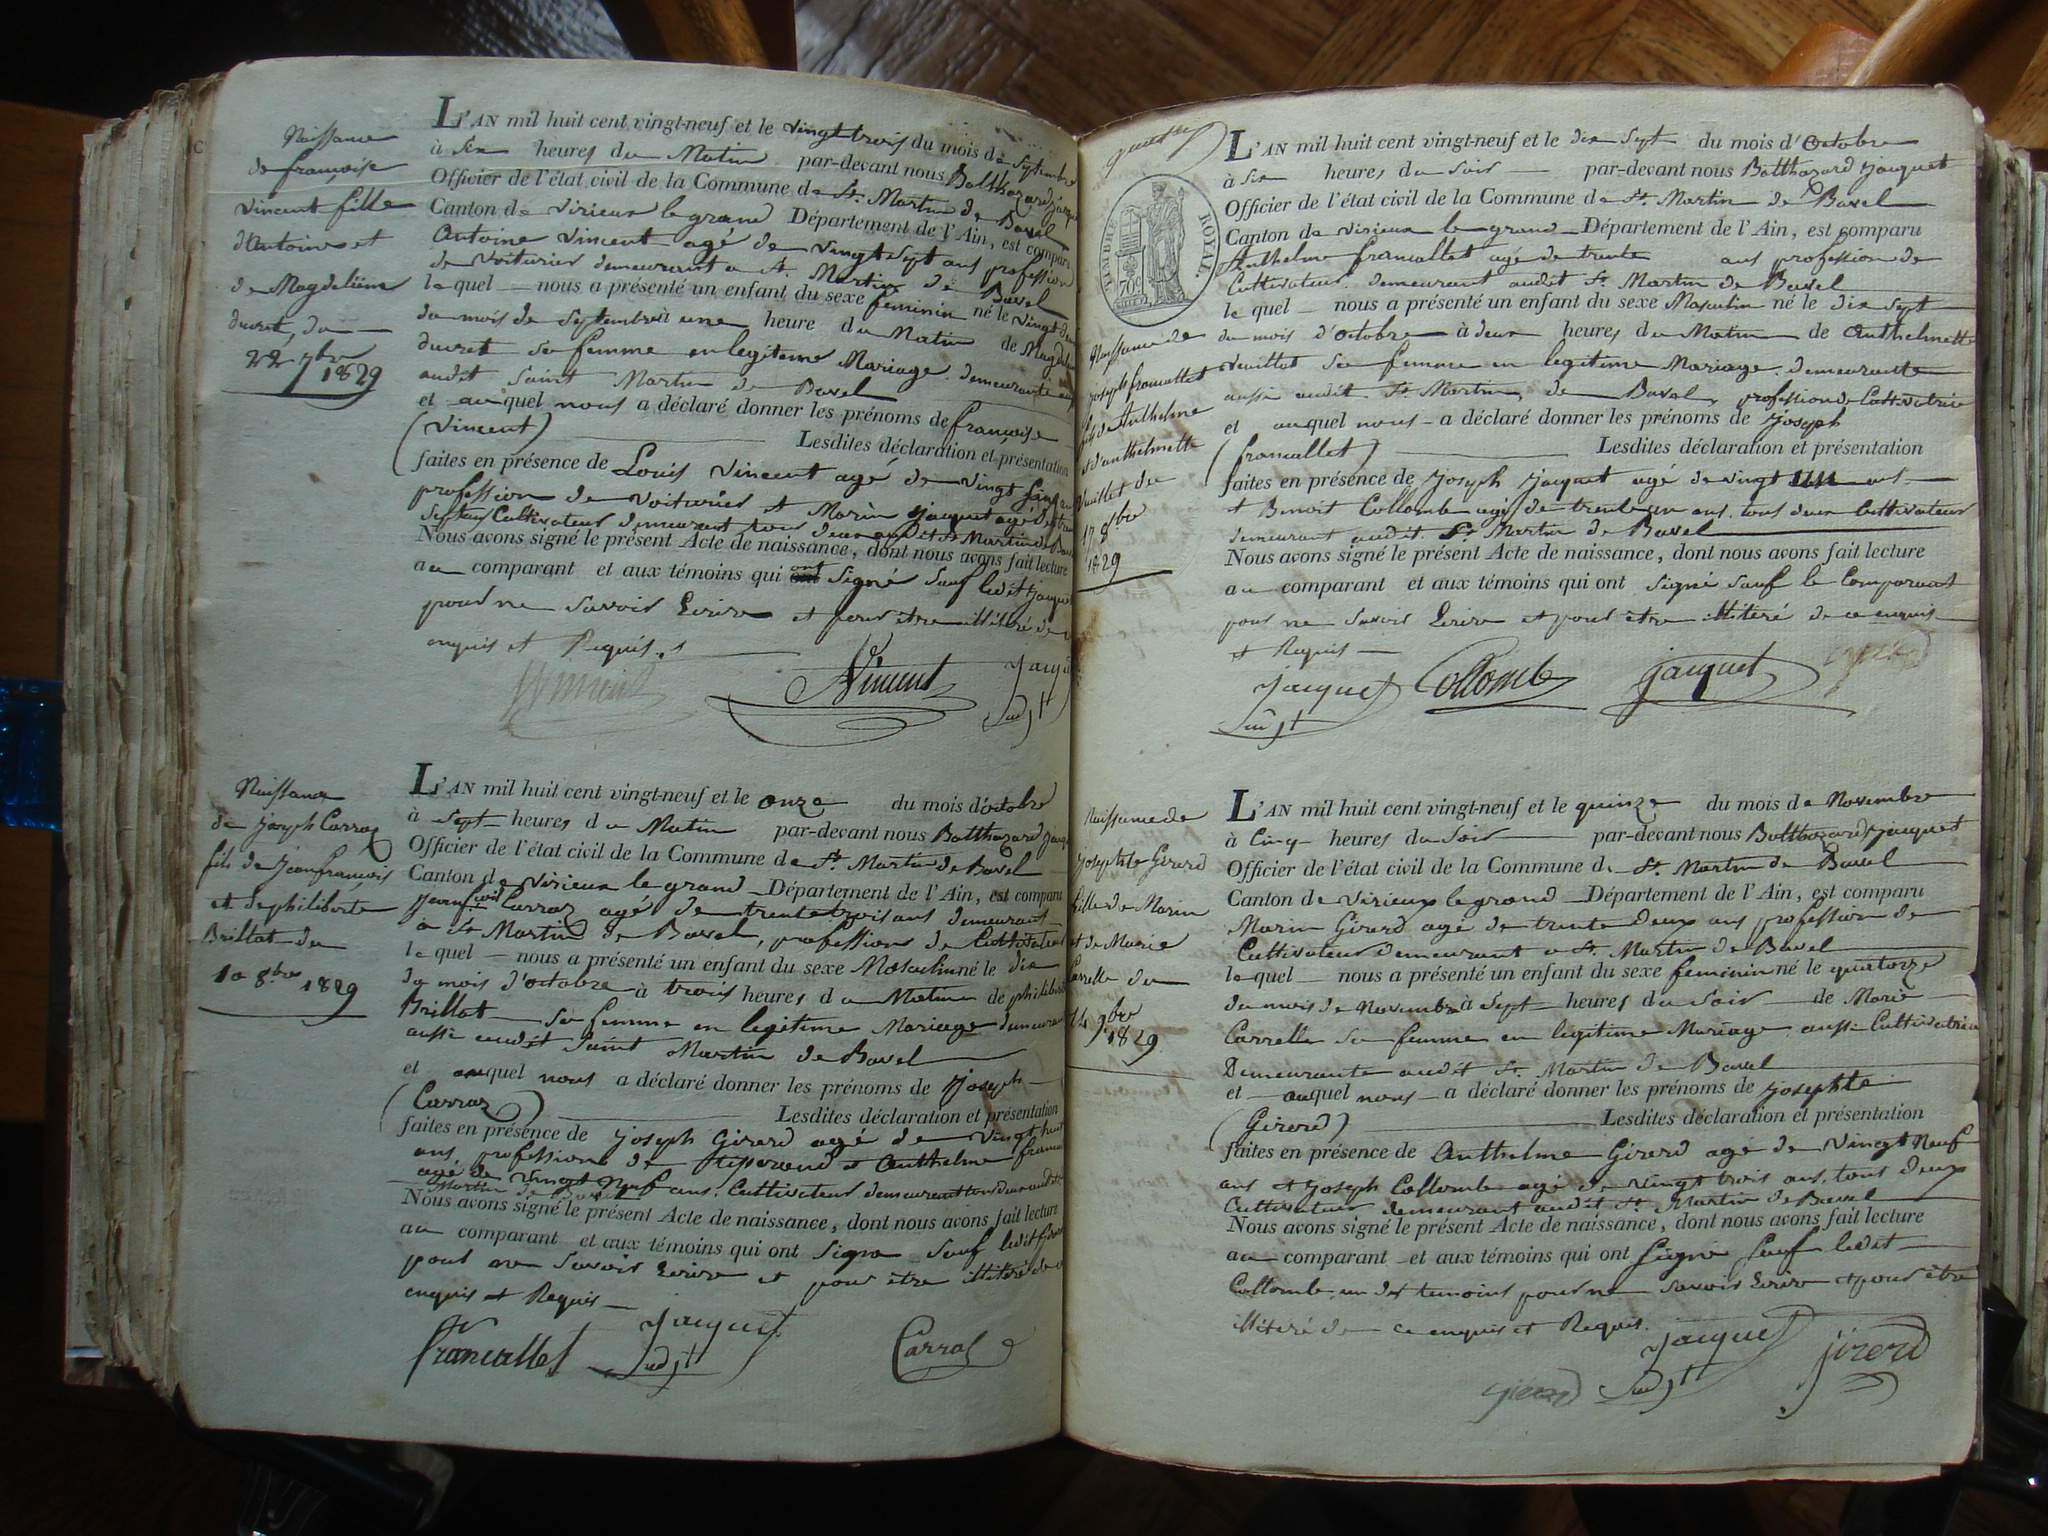 Naissance
de françoise
vincent fille
d'Antoine et
de Magdeleine
ducret, du
22 7bre
1829
L'AN mil huit cent vingt-neuf et le vingt trois du mois de Septembre
à six heures du Matin par-devant nous Balthazard
Officier de l'état civil de la Commune de St. Martin de Bavel
Canton de virieux le grand Département de l'Ain, est comparu
Antoine vincent agé de vingt sept ans profession
de voiturier demeurant a St. Martin de Bavel
lequel nous a présenté un enfant du sexe feminin né le vingt
du mois de Septembre à une heure du Matin de
ducret sa femme en legiteme Mariage demeurante
audit Saint Martin de Bavel
et auquel nous a déclaré donner les prénoms de françoise
(vincent) Lesdites déclaration et présentation
faites en présence de Louis vincent agé de vingt
profession de voiturier et Marin jaquet agé de
Cultivateur demeurant tous deux audit St Martin de
Nous avons signé le présent Acte de naissance, dont nous avons fait lecture
au comparant et aux témoins qui ont signé Sauf ledit
pour ne savoir Ecrire et pour être illitéré de
enquis et Requis
Vincent
Naissance
de joseph Carraz
fils de jeanfrançois
et de philiberte
Brillat du
10 8bre 1829
L'AN mil huit cent vingt-neuf et le onze du mois d'octobre
à Sept heures du Matin par-devant nous Balthazard
Officier de l'état civil de la Commune de St Martin de Bavel
Canton de virieux le grand Département de l'Ain, est comparu
jeanf.çois Carraz agé de trente trois ans demeurant
a St Martin de Bavel, profession de Cultivateur
lequel nous a présenté un enfant du sexe Masculin né le dix
du mois d'octobre à trois heures du Matin de
Brillat sa femme en legitime Mariage
aussi audit Saint Martin de Bavel
et auquel nous a déclaré donner les prénoms de joseph
(Carraz) Lesdites déclaration et présentation
faites en présence de joseph Girerd agé de vingt huit
ans, profession de et Anthelme
agé de vingt Neuf ans, Cultivateur demeurant tous deux audit
Martin de Bavel
Nous avons signé le présent Acte de naissance, dont nous avons fait lecture
au comparant et aux témoins qui ont signé Sauf ledit
pour ne savoir Ecrire et pour être illitéré de
enquis et Requis
francallet jacquet Carraz
TIMBRE ROYAL
70c
Naissance de
joseph francallet
fils de Anthelme
et d'anthelmette
vuillet du
17 8bre
1829
L'AN mil huit cent vingt-neuf et le dix sept du mois d'Octobre
à six heures du Soir par-devant nous Balthazard jacquet
Officier de l'état civil de la Commune de St. Martin de Bavel
Canton de virieux le grand Département de l'Ain, est comparu
Anthelme francallet agé de trente ans profession de
Cultivateur demeurant audit St. Martin de Bavel
lequel nous a présenté un enfant du sexe Masculin né le dix sept
du mois d'octobre à deux heures du Matin de Anthelmette
sa femme en legitime Mariage demeurante
aussi audit St. Martin de Bavel, profession de Cultivatrice
et auquel nous a déclaré donner les prénoms de joseph
(francallet) Lesdites déclaration et présentation
faites en présence de joseph jacquet agé de vingt ans
et Benoit Collomb agé de trente un ans, tous deux Cultivateur
demeurant audit St Martin de Bavel
Nous avons signé le présent Acte de naissance, dont nous avons fait lecture
au comparant et aux témoins qui ont signé Sauf le Comparant
pour ne Savoir Ecrire et pour être illitéré de ce enquis
et Requis
jacquet Collomb jacquet
Naissance de
josephte Girerd
fille de Marin
et de Marie
Carrelle du
14 9bre
1829
L'AN mil huit cent vingt-neuf et le quinze du mois de Novembre
à Cinq heures du Soir par-devant nous Balthazard jacquet
Officier de l'état civil de la Commune de St. Martin de Bavel
Canton de virieux le grand Département de l'Ain, est comparu
Marin Girerd agé de trente deux ans profession de
Cultivateur demeurant a St. Martin de Bavel
lequel nous a présenté un enfant du sexe feminin né le quatorze
du mois de Novembre à Sept heures du Soir de Marie
Carrelle sa femme en legitime Mariage aussi Cultivatrice
Demeurante audit St. Martin de Bavel
et auquel nous a déclaré donner les prénoms de josephte
(Girerd) Lesdites déclaration et présentation
faites en présence de Anthelme Girerd agé de vingt Neuf
ans et joseph Collomb agé de vingt trois ans, tous deux
Cultivateur demeurant audit St. Martin de Bavel
Nous avons signé le présent Acte de naissance, dont nous avons fait lecture
au comparant et aux témoins qui ont Signé Sauf ledit
Collomb un des temoins pour ne savoir Ecrire et pour être
illitéré de ce enquis et Requis.
jacquet jirerd